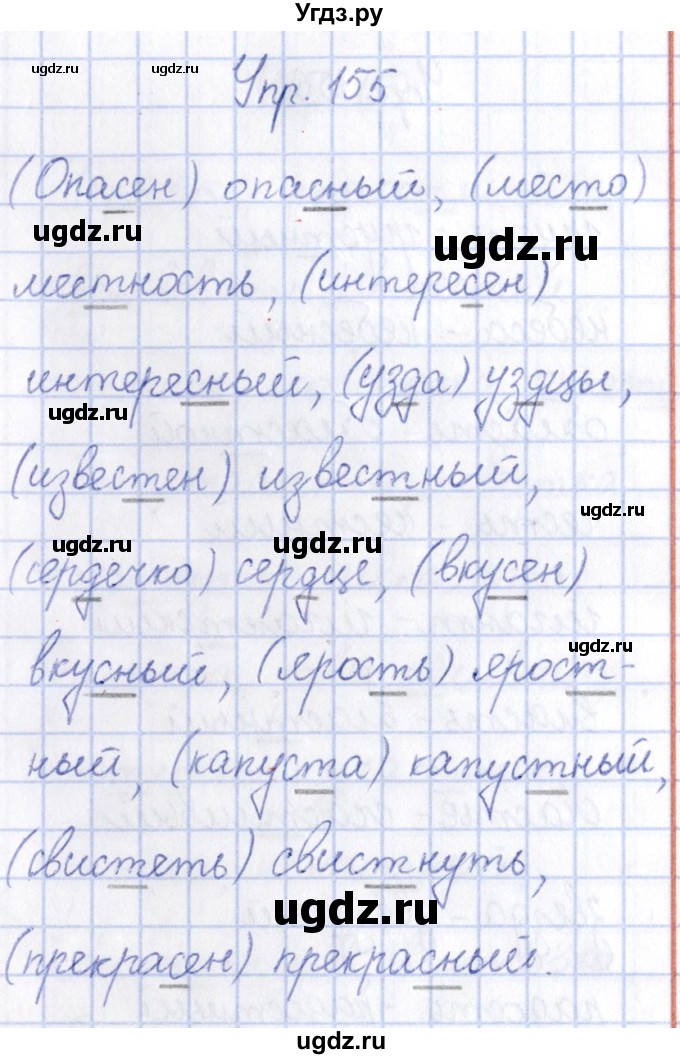 Угдз.ру
ugdz.ru
ugdz.ru
Упр. 155
(Опасен) опасный, (место)
ugdz.ru
ugdz.ru
местность, (интересен)
интересный, (узда) уздцы,
ugdz.ru
(известен) известный,
ugdz.ru
ugdz.ru
ugdz.ru
(сердечко) сердце, (вкусен)
ugdz.ru
вкусный, (ярость) ярост-
ный, (капуста) капустный,
(свистеть) свистнуть,
ugdz.ru
(прекрасен) прекрасный.
ugdz.ru
ugdz.ru
ugdz.ru